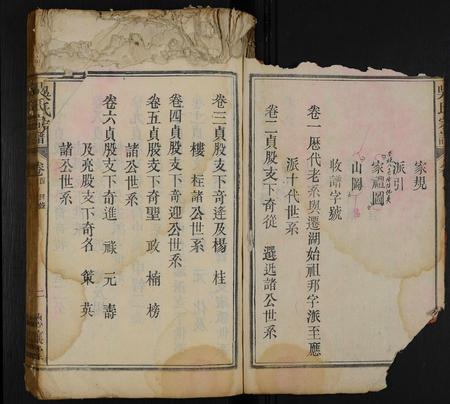 家規
派引
家祖圖
山圖
收譜字號
卷一歷代老系與遷湖始祖邦字派至應
派十代世系
卷二貞股支下奇從 選迅諸公世系
卷三貞股支下奇逵及楊 桂
樓 柱諸公世系
卷四貞股支下奇迎公世系
卷五貞股支下奇聖 政 楠 榜
諸公世系
卷六貞股支下奇進 祿 元 壽
及亮股支下奇名 策 英
諸公世系